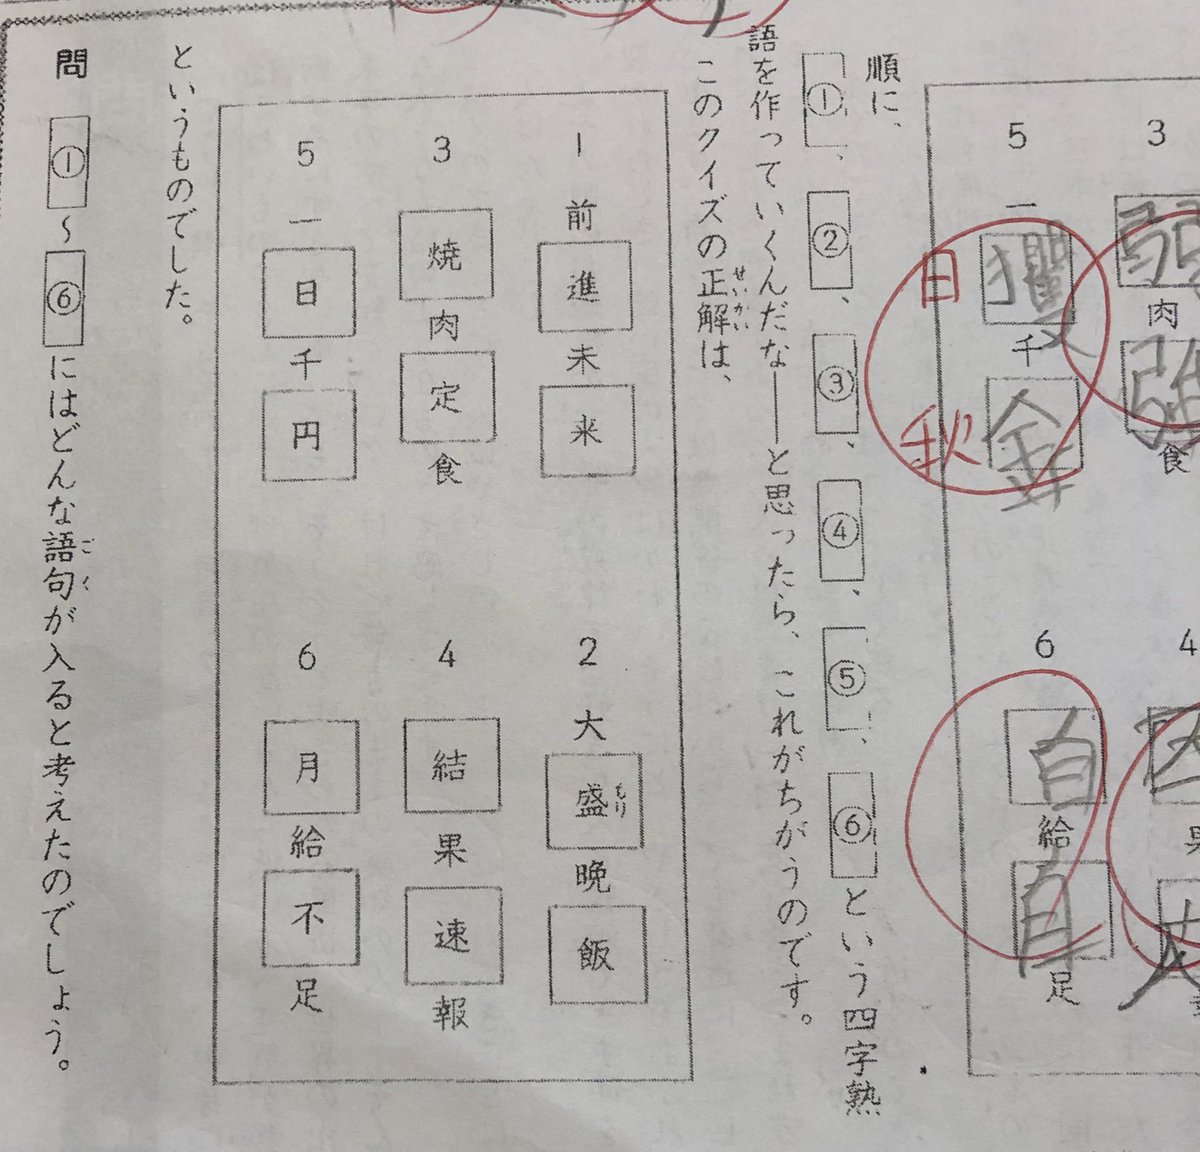 3 弱肉強食
5 一獲千金 6 自給自足
日 秋
順に、
①、②、③、④、⑤、⑥という四字熟
語を作っていくんだな――と思ったら、これがちがうのです。
このクイズの正解は、
せいかい
1 前進未来 2 大盛晩飯
もり
3 焼肉定食 4 結果速報
5 一日千円 6 月給不足
というものでした。
問 ①〜⑥にはどんな語句が入ると考えたのでしょう。
ごく